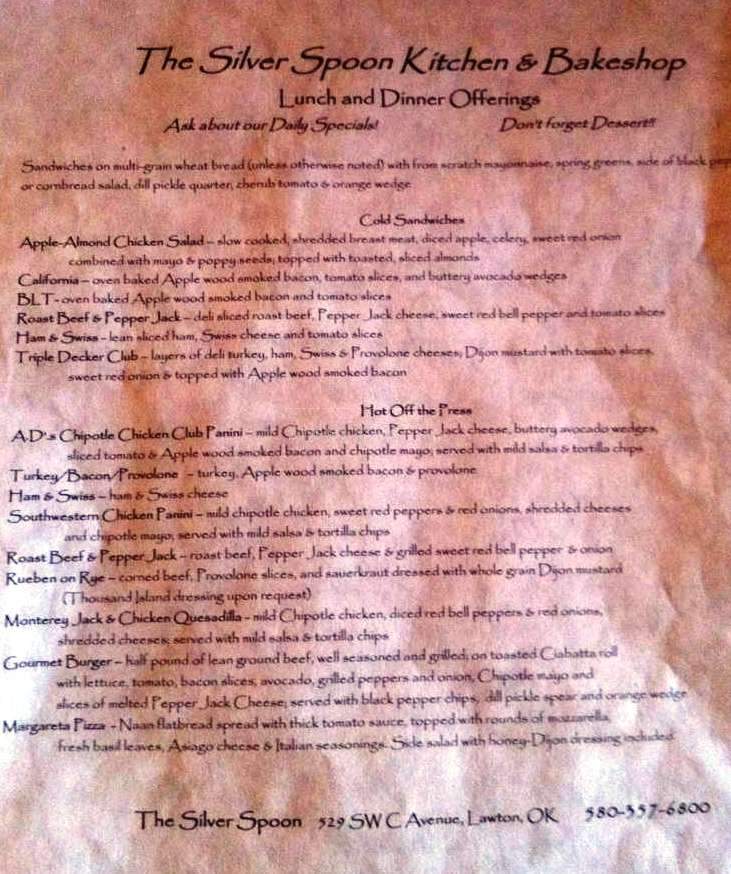 The Silver Spoon Kitchen & Bakeshop
Lunch and Dinner Offerings
Ask about our Daily Specials! Don't forget Dessert!!
Sandwiches on multi-grain wheat bread (unless otherwise noted) with from scratch mayonnaise, spring greens, side of black pep
or cornbread salad, dill pickle quarter, cherub tomato & orange wedge
Cold Sandwiches
Apple-Almond Chicken Salad – slow cooked, shredded breast meat, diced apple, celery, sweet red onion
combined with mayo & poppy seeds; topped with toasted, sliced almonds
California – oven baked Apple wood smoked bacon, tomato slices, and buttery avocado wedges
BLT - oven baked Apple wood smoked bacon and tomato slices
Roast Beef & Pepper Jack – deli sliced roast beef, Pepper Jack cheese, sweet red bell pepper and tomato slices
Ham & Swiss - lean sliced ham, Swiss cheese and tomato slices
Triple Decker Club – layers of deli turkey, ham, Swiss & Provolone cheeses; Dijon mustard with tomato slices,
sweet red onion & topped with Apple wood smoked bacon
Hot Off the Press
A.D.'s Chipotle Chicken Club Panini – mild Chipotle chicken, Pepper Jack cheese, buttery avocado wedges,
sliced tomato & Apple wood smoked bacon and chipotle mayo; served with mild salsa & tortilla chips
Turkey/Bacon/Provolone – turkey, Apple wood smoked bacon & provolone
Ham & Swiss – ham & Swiss cheese
Southwestern Chicken Panini – mild chipotle chicken, sweet red peppers & red onions, shredded cheeses
and chipotle mayo; served with mild salsa & tortilla chips
Roast Beef & Pepper Jack – roast beef, Pepper Jack cheese & grilled sweet red bell pepper & onion
Rueben on Rye – corned beef, Provolone slices, and sauerkraut dressed with whole grain Dijon mustard
(Thousand Island dressing upon request)
Monterey Jack & Chicken Quesadilla - mild Chipotle chicken, diced red bell peppers & red onions,
shredded cheeses; served with mild salsa & tortilla chips
Gourmet Burger – half pound of lean ground beef, well seasoned and grilled; on toasted Ciabatta roll
with lettuce, tomato, bacon slices, avocado, grilled peppers and onion, Chipotle mayo and
slices of melted Pepper Jack Cheese; served with black pepper chips, dill pickle spear and orange wedge
Margareta Pizza - Naan flatbread spread with thick tomato sauce, topped with rounds of mozzarella,
fresh basil leaves, Asiago cheese & Italian seasonings. Side salad with honey-Dijon dressing included.
The Silver Spoon 529 SW C Avenue, Lawton, OK 580-357-6800